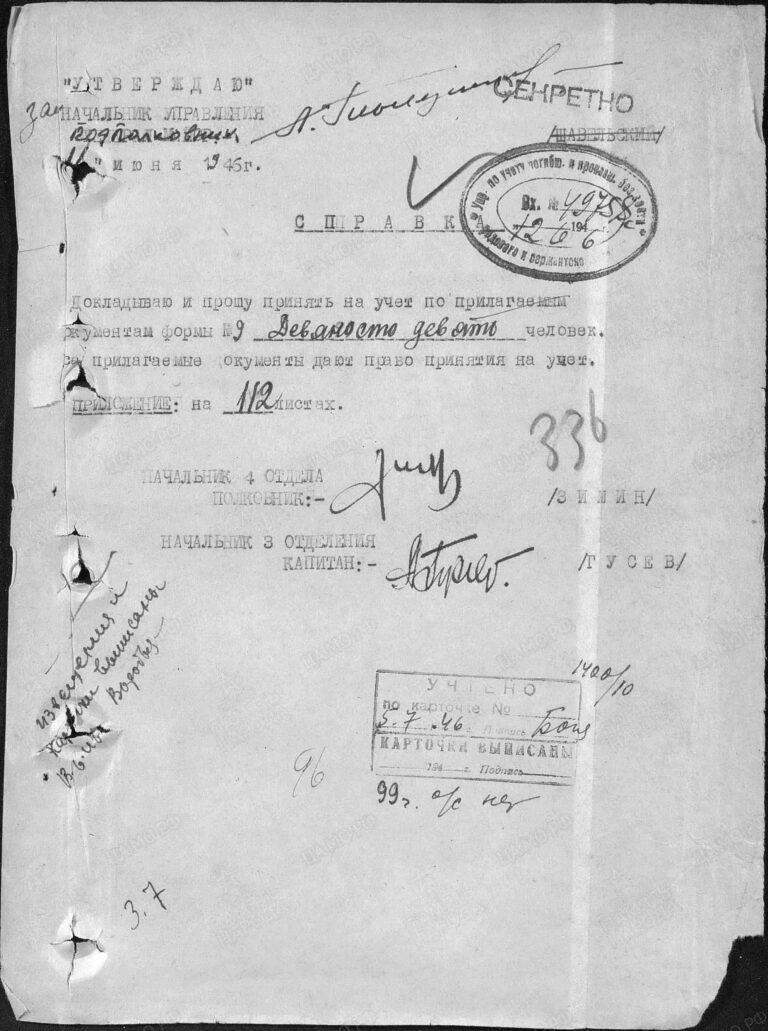 "УТВЕРЖДАЮ"
СЕКРЕТНО
зам НАЧАЛЬНИК УПРАВЛЕНИЯ
подполковник
/ШАВЕЛЬСКИЙ/
" июня 1946г.
Упр. по учету погибш. и пропавш. без вести
Вх. №
"12" 6 1946 г.
рядового и сержантско
СПРАВКА
Докладываю и прошу принять на учет по прилагаемым
документам формы №9 Девяносто девять человек.
прилагаемые окументы дают право принятия на учет.
ПРИЛОЖЕНИЕ: на 112 листах.
336
НАЧАЛЬНИК 4 ОТДЕЛА
ПОЛКОВНИК:- /ЗИМИН/
НАЧАЛЬНИК 3 ОТДЕЛЕНИЯ
КАПИТАН:- /ГУСЕВ/
извещения и
выписаны
1400/10
УЧТЕНО
по карточке №
5.7.46 г. Подпись
КАРТОЧКИ ВЫПИСАНЫ
194 г. Подпись
96
99г. о/с нет
3.7